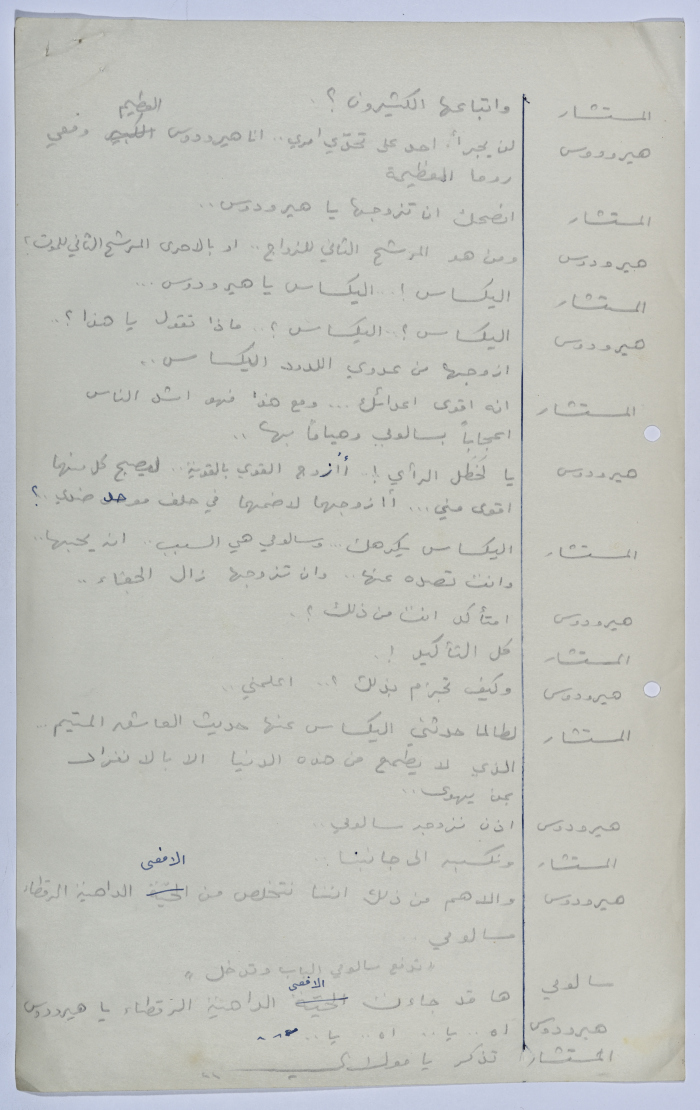 المستشار واتباعها الكثيرون ؟ .
العظيم
هيرودوس لن يجرأ احد على تحدّي امري .. انا هيرودوس الكبير ومعي
روما العظيمة
المستشار انصحك ان تزوجها يا هيرودوس ..
هيرودوس ومن هو المرشح الثاني للزواج .. او بالاحرى المرشح الثاني للموت ؟
المستشار اليكساس ! .. اليكساس يا هيرودوس ...
هيرودوس اليكساس ؟ .. اليكساس ؟ .. ماذا تقول يا هذا ؟ ..
ازوجها من عدوي اللدود اليكساس ..
المستشار انه اقوى اعدائك ... ومع هذا فهو اشد الناس
اعجاباً بسالومي وهياماً بها ..
هيرودوس يا لخَطَل الرأي ! .. أأُزوج القوي بالقوية .. ليصبح كل منهما
اقوى مني ... أازوجها لاضمهما في حلف موحد ضدي .. ؟
المستشار اليكساس يكرهك .. وسالومي هي السبب .. انه يحبها ..
وانت تصده عنها .. وان تزوجها زال الجفاء ..
هيرودوس امتأكد انت من ذلك ؟ .
المستشار كل التأكيد ! .
هيرودوس وكيف تجزم بذلك ؟ .. اعلمني ..
المستشار لطالما حدثني اليكساس عنها حديث العاشق المتيم ..
الذي لا يطمع من هذه الدنيا الا بالانفراد
بمن يهوى ..
هيرودوس اذن نزوجه سالومي ..
المستشار ونكسبه الى جانبنا ..
الافعى
هيرودوس والاهم من ذلك اننا نتخلص من الحيّة الداهية الرقطاء
سالومي ..
" تدفع سالومي الباب وتدخل "
الافعى
سالومي ها قد جاءت الحيّة الداهية الرقطاء يا هيرودوس
هيرودوس اه .. يا .. اه .. يا ..
المستشار تذكر يا مولاي ..